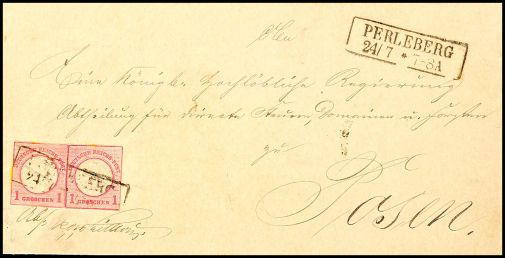 PERLEBERG
24/7 * 7-8A
An
Eine Königl. Hochlöbliche Regierung
Abtheilung für directe Steuern, Domainen u. Forsten
zu
Posen.
DEUTSCHE REICHS-POST DEUTSCHE REICHS-POST
1 1 1 1
GROSCHEN GROSCHEN